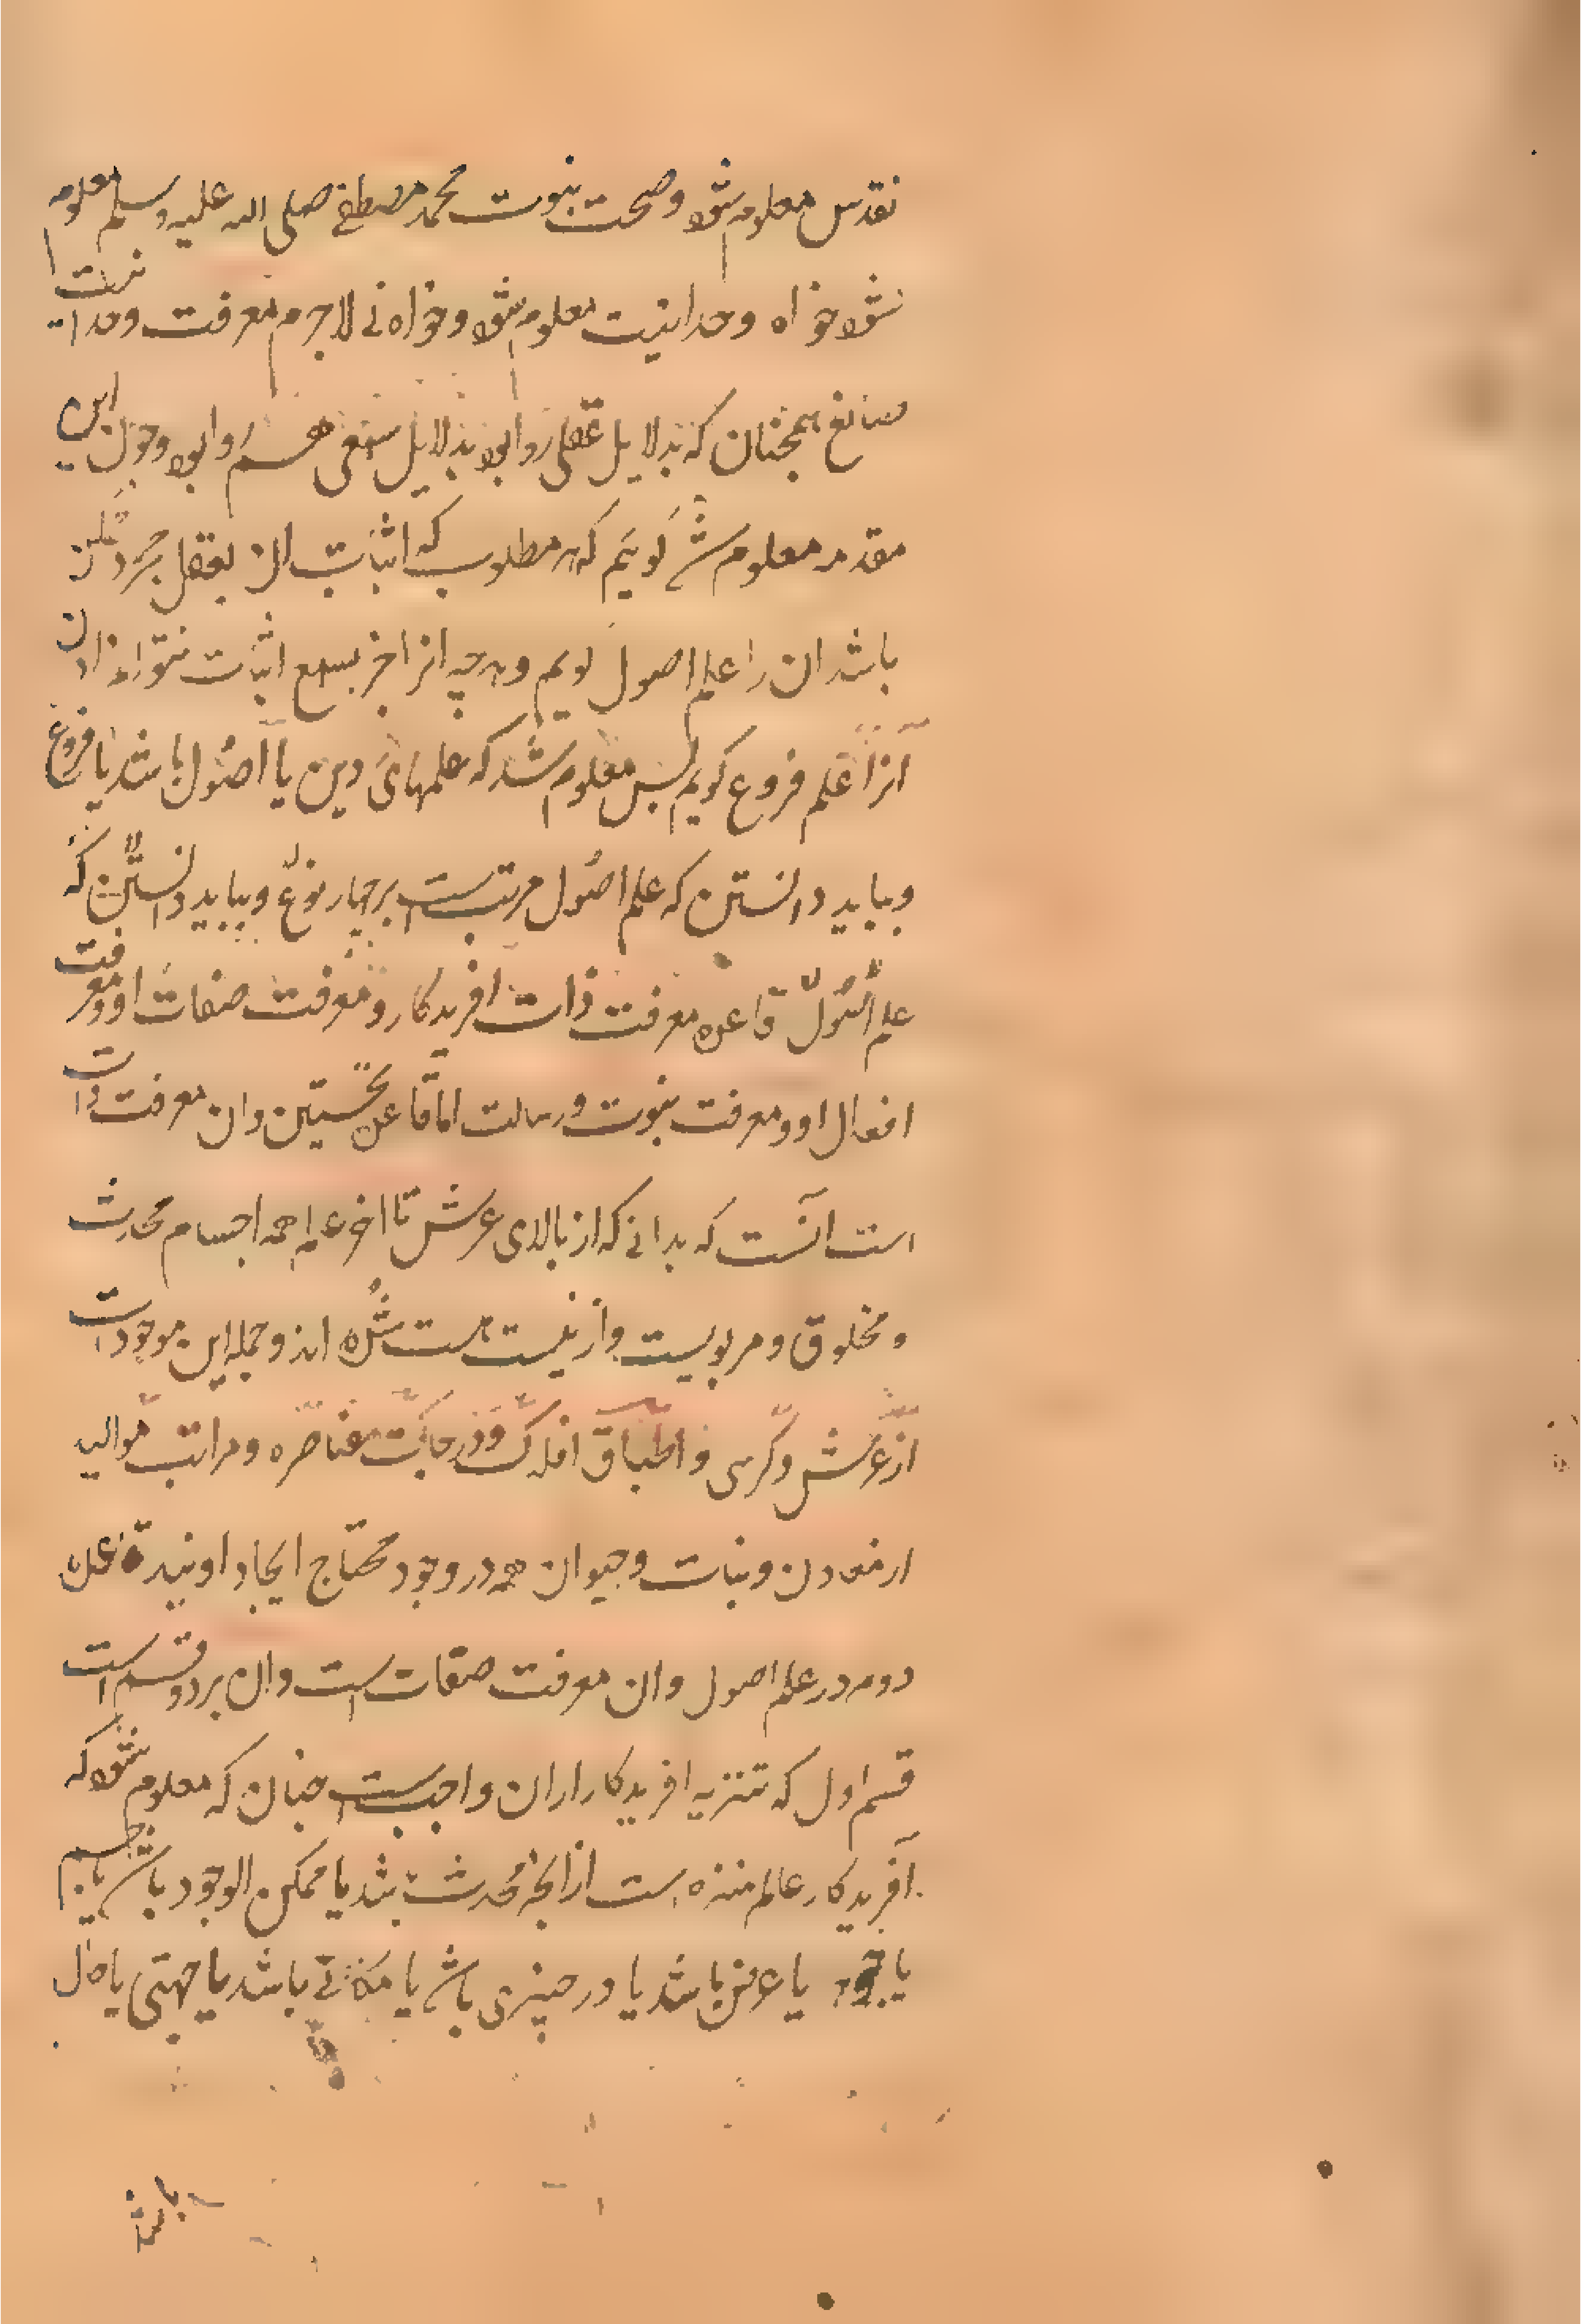 تقدس معلوم شود وصحت نبوت محمد مصطفی صلی الله علیه وسلم معلوم
شود خواه وحدانیت معلوم شود وخواه نی لاجرم معرفت وحدانیت
صانع همچنان که بدلایل عقلی روا بود بدلایل سمعی هم روا بود وچون این
مقدمه معلوم شد کویم که هر مطلوب که اثبات ان بعقل مجرد ممکن
باشد ان را علم اصول کویم وهرچه انرا جز بسمع اثبات نتوان
آنرا علم فروع کویم پس معلوم شد که علمهای دین یا اصول باشد یا فروع
وبباید دانستن که علم اصول مرتبست برچهار نوع وبباید دانستن که
علم اصول قاعده معرفت ذات افریدکار ومعرفت صفات او ومعرفت
افعال او ومعرفت نبوت ورسالت اما قاعده نخستین وان معرفت ذات
است انست که بدانی که از بالای عرش تا اخر همه اجسام محدث
ومخلوق ومربوبست واز نیست هست شده اند وجمله این موجودات
از عرش وکرسی واطباق افلاک ودرجات عناصره ومراتب موالید
از معادن ونبات وحیوان همه در وجود محتاج ایجاد اویند قاعده
دوم در علم اصول وان معرفت صفات است وان بر دو قسم است
قسم اول که تنزیه افریدکار از ان واجبست چنان که معلوم شود که
آفریدکار عالم منزه است از انچه محدث باشد یا ممکن الوجود باشد یا جسم
یا جوهر یا عرض باشد یا در حیزی باشد یا مکانی باشد یا جهتی یا حال
باشد